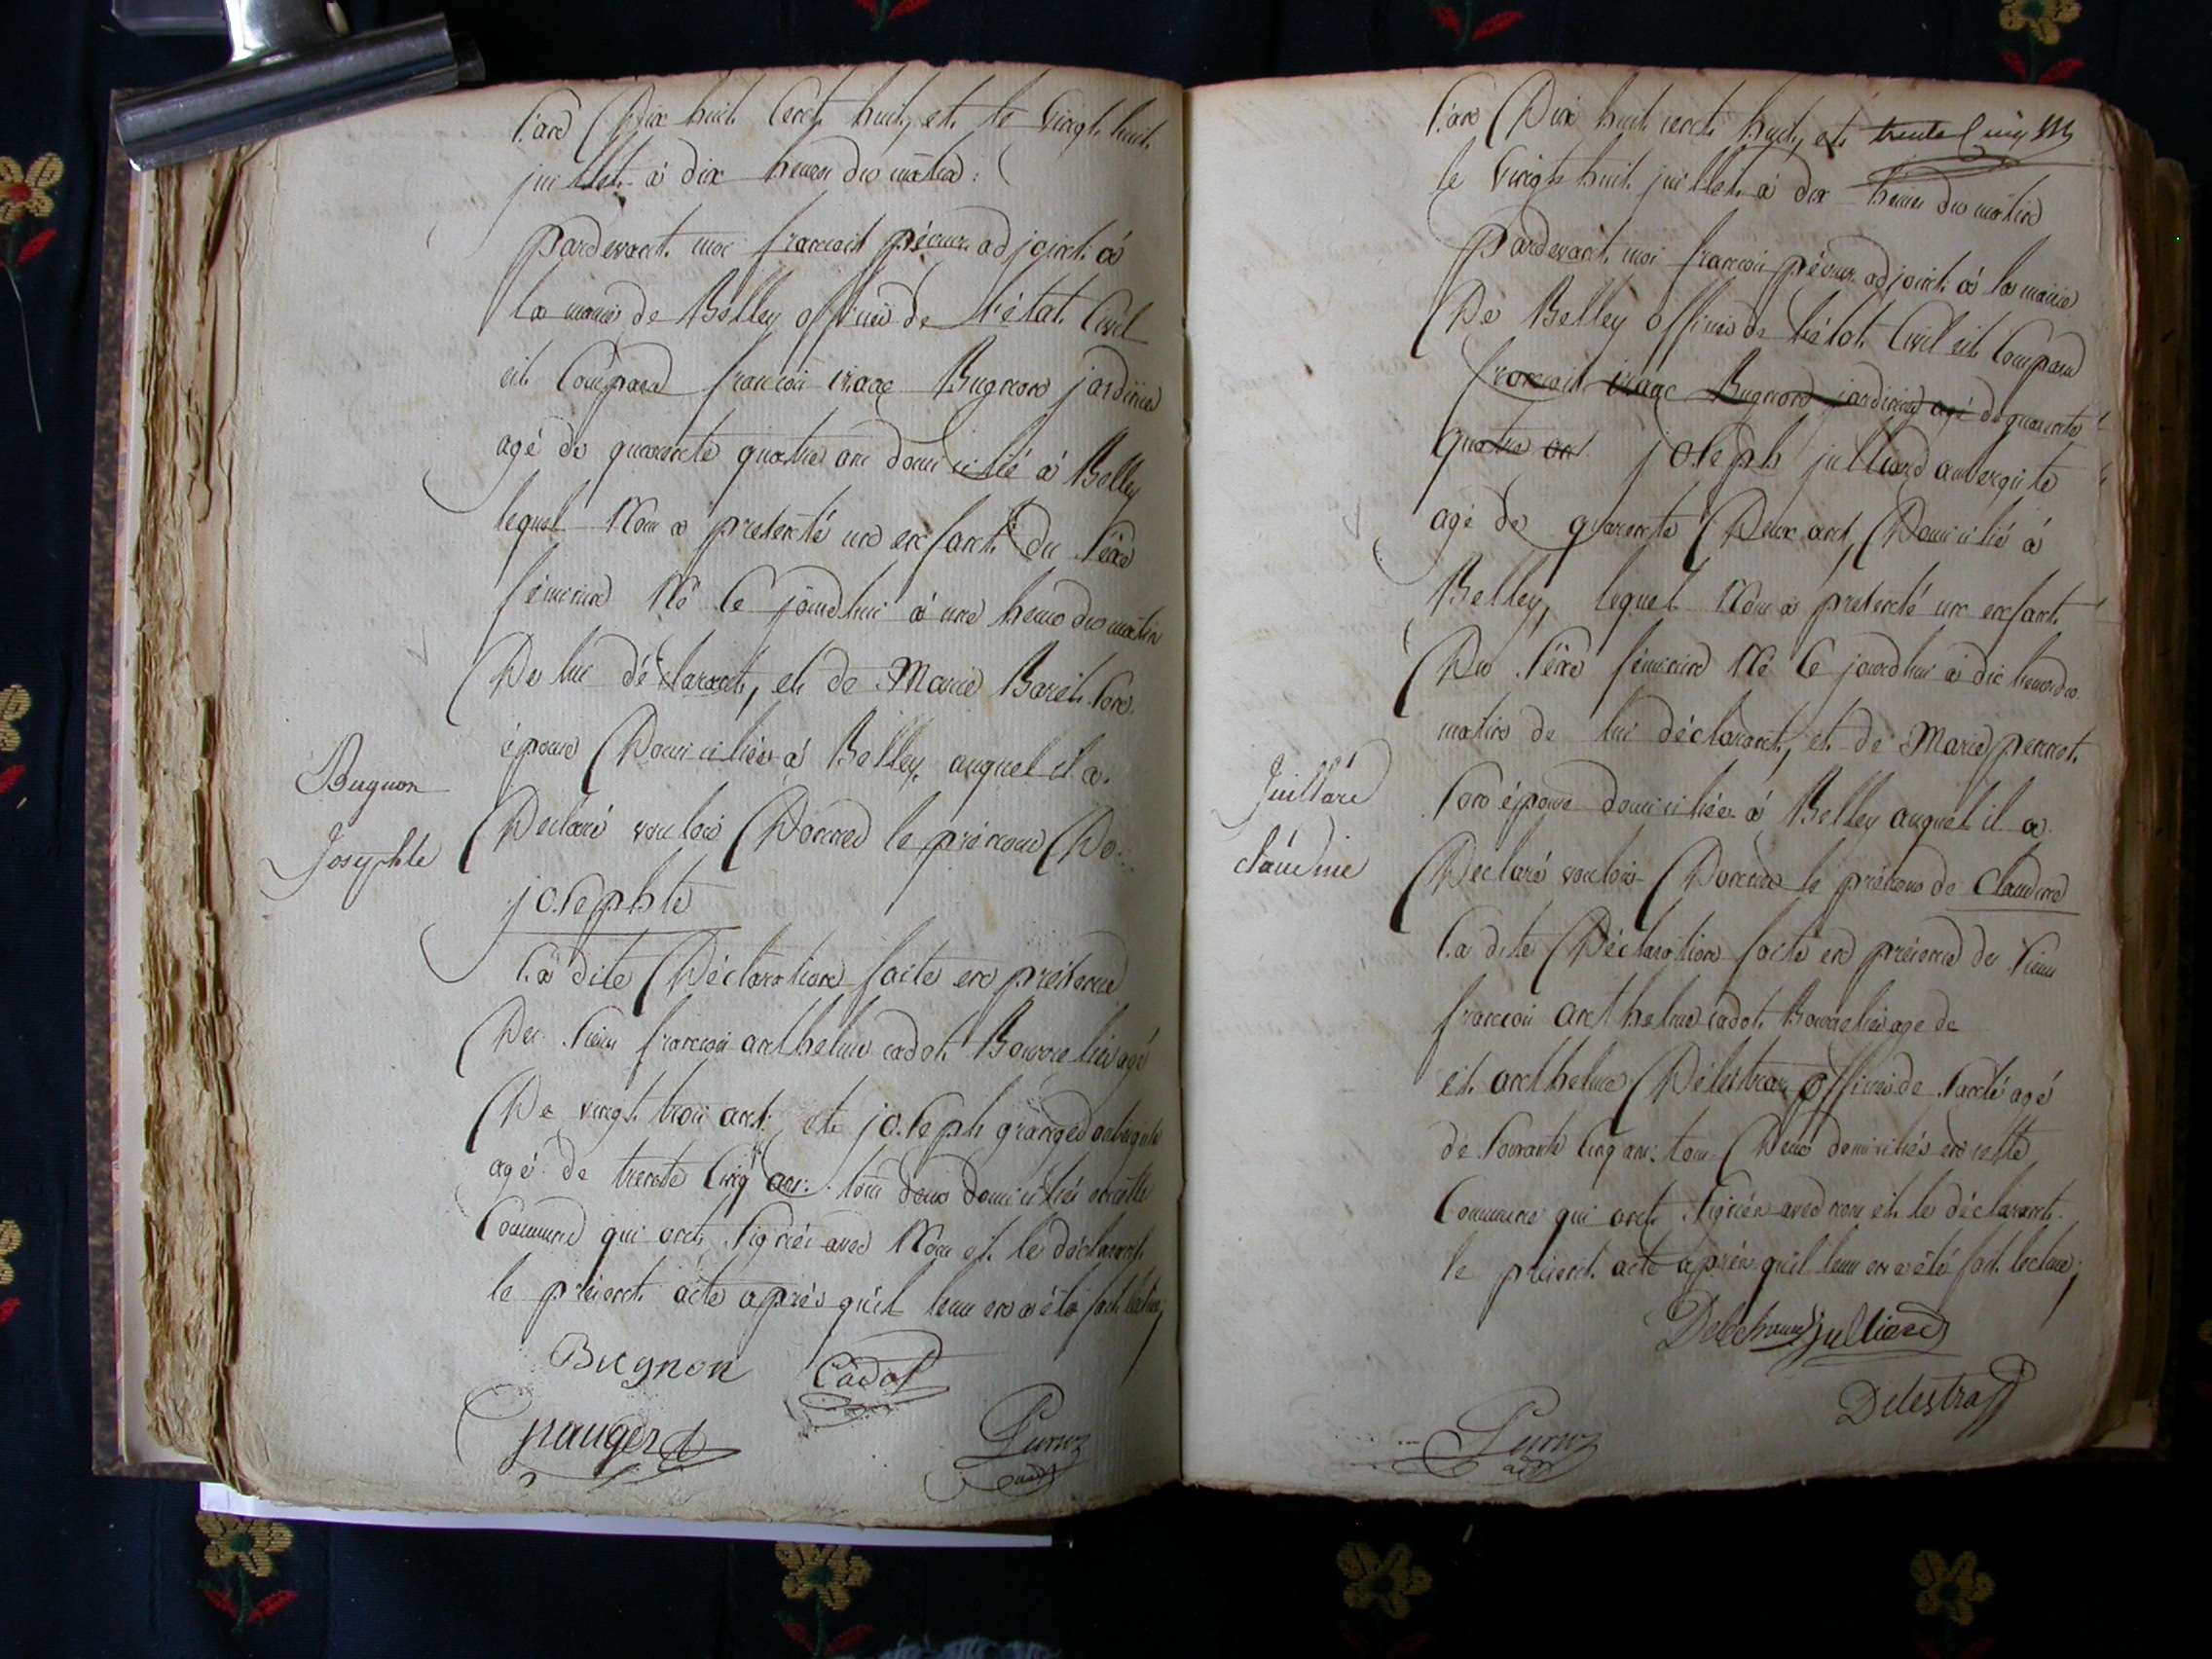 l'an Dix huit Cent huit, et le Vingt huit
juillet à dix heures du matin :
Pardevant moi francois péruz adjoint à
la mairie de Belley officier de l'état Civil
est Comparu francois isaac Bugnon jardinier
agé de quarente quatre ans domicilié à Belley
lequel Nous a presenté un enfant du sexe
féminin Né Ce jourdhui à une heure du matin
De lui déclarant, et de Marie Boret son
épouse Domiciliée à Belley, auquel il a
Bugnon
Josephte
Declaré vouloir Donner le prénom De
josephte
la dite Déclaration faite en présence
Des sieur francois anthelme cadot Bourrelier agé
De vingt trois ans et joseph granged aubergiste
agé de trente Cinq ans tous deux domiciliés en cette
Commune qui ont signés avec Nous et le déclarant
le présent acte après qu'il leur en a été fait lecture,
Bugnon Cadot
Peruz
adjt
l'an Dix huit cent huit, et
le Vingt huit juillet à dix heures du matin
Pardevant moi francois péruz adjoint à la mairie
De Belley officier de l'état Civil est Comparu
francois isaac Bugnon jardinier agé de quarente
quatre ans joseph julliard aubergiste
agé de quarente Deux ans, Domicilié à
Belley, lequel Nous a presenté un enfant
Du sexe féminin Né Ce jourdhui à dix heures du
matin de lui déclarant, et de Marie perrot
son épouse domiciliée à Belley auquel il a
Juillard
claudine
Declaré vouloir Donner le prénom de Claudine
la dite Déclaration faite en présence des sieur
francois anthelme cadot Bourrelier age de
et anthelme Délestraz officier de santé agé
de soixante Cinq ans tous Deux domiciliés en cette
Commune qui ont signés avec nous et le déclarant
le présent acte après qu'il leur en a été fait lecture,
julliard
Delestraz
Peruz
adjt